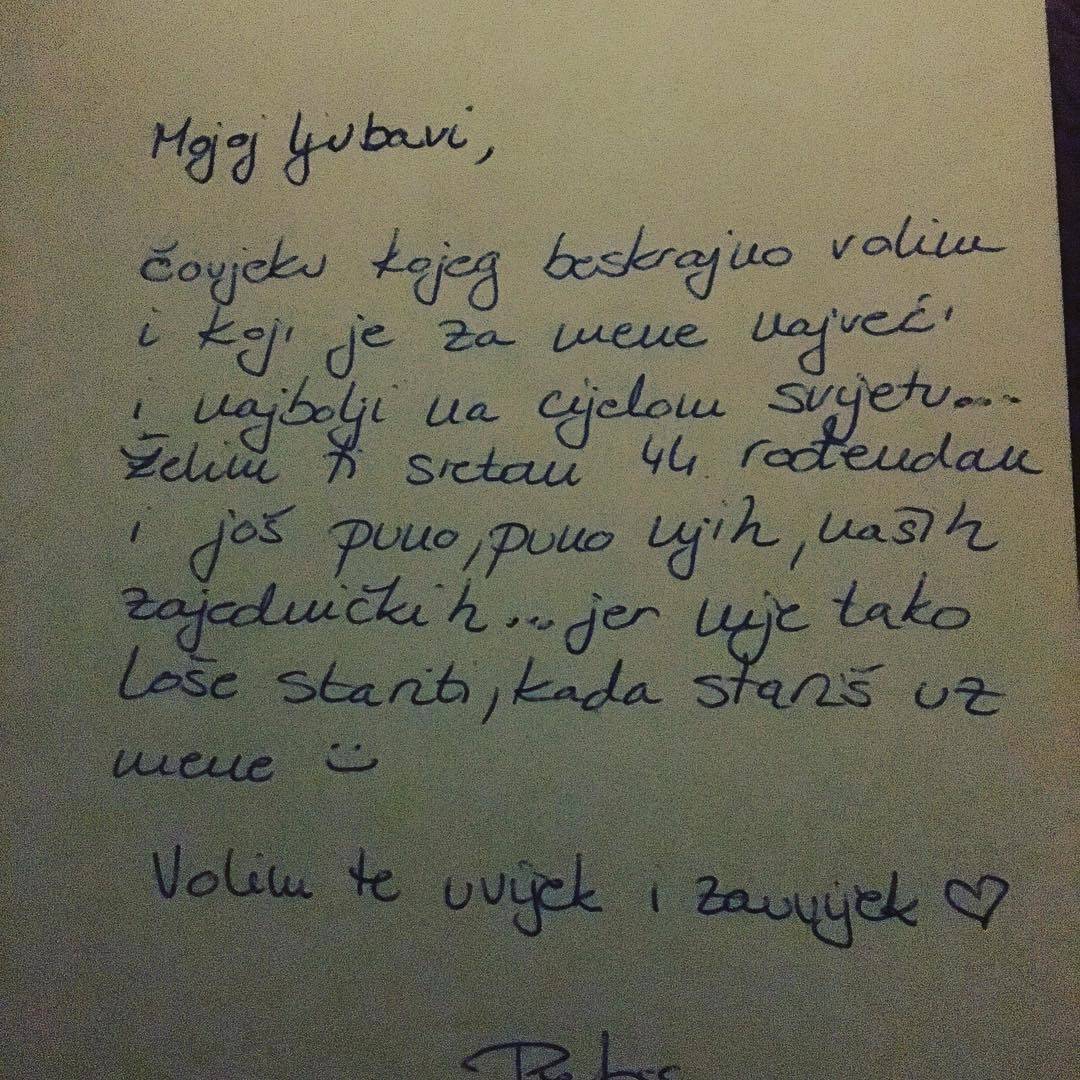 Mojoj ljubavi,
čovjeku kojeg beskrajno volim
i koji je za mene najveći
i najbolji na cijelom svijetu...
Želim ti sretan 44. rođendan
i još puno, puno njih, naših
zajedničkih... jer nije tako
loše stariti, kada stariš uz
mene :)
Volim te uvijek i zauvijek ♡